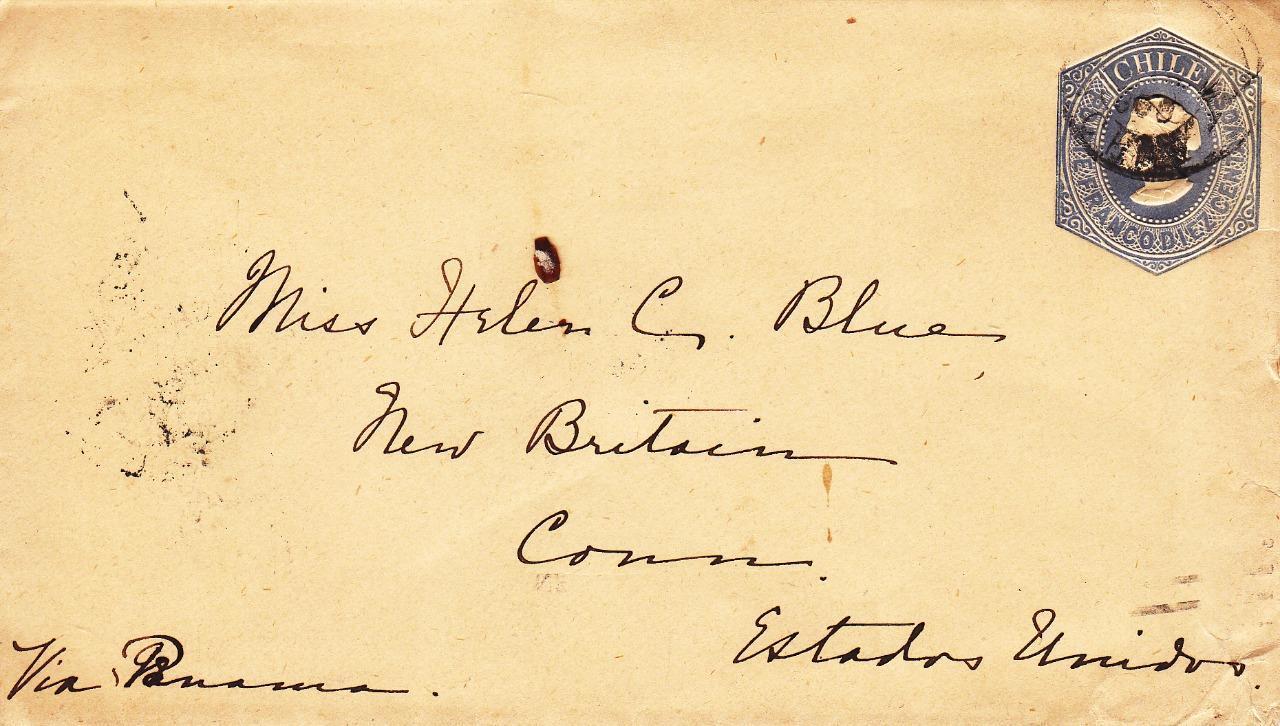 CHILE
FRANCO DIEZ CENT
Miss Helen C. Blue
New Britain
Conn.
Estados Unidos.
Via Panama.